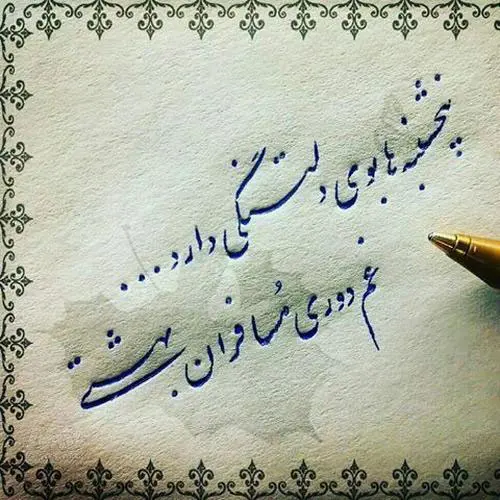 پنجشنبه ها بوی دلتنگی دارد...
غم دوری مُسافران بهشتی